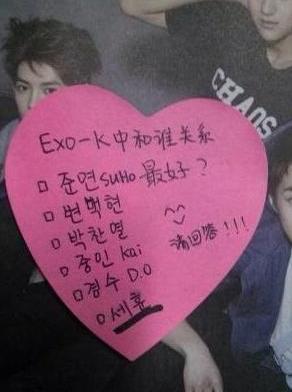 CHAOS
Exo-K中和谁关系
□ 준면 SUHO 最好?
□ 변백현
□ 박찬열
□ 종인 Kai 请回答!!!
□ 경수 D.O
□ 세훈